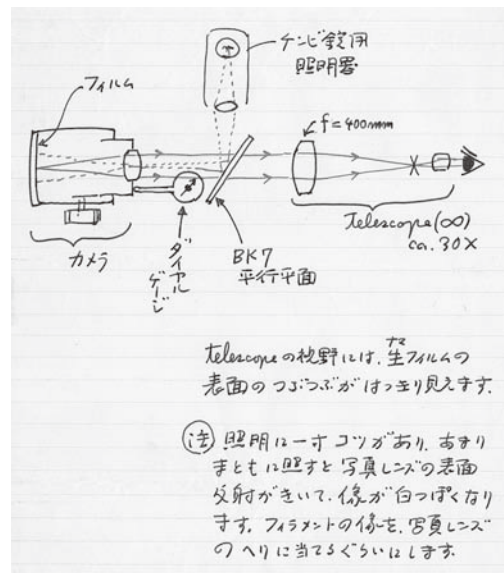 ケンビ鏡用
照明器
フィルム
f=400mm
カメラ
ダイヤル
ゲージ
BK7
平行平面
telescope(∞)
ca. 30X
telescopeの視野には、生フィルムの
ナマ
表面のつぶつぶがはっきり見えます。
注 照明に一寸コツがあり、あまり
まともに照すと写真レンズの表面
反射がきいて、像が白っぽくなり
ます。フィラメントの像を、写真レンズ
のヘリに当てるぐらいにします。